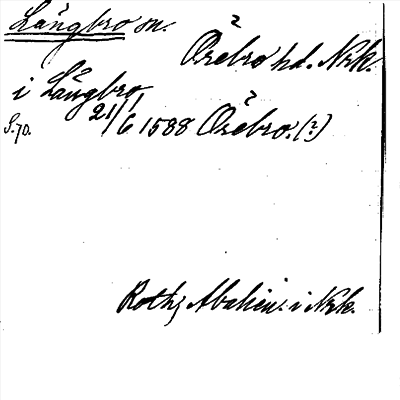 Långbro sn.
Örebro hd. Nrk.
i Långbro
S. 70. 21/6 1588 Örebro. (?)
Roth, i Nrk.